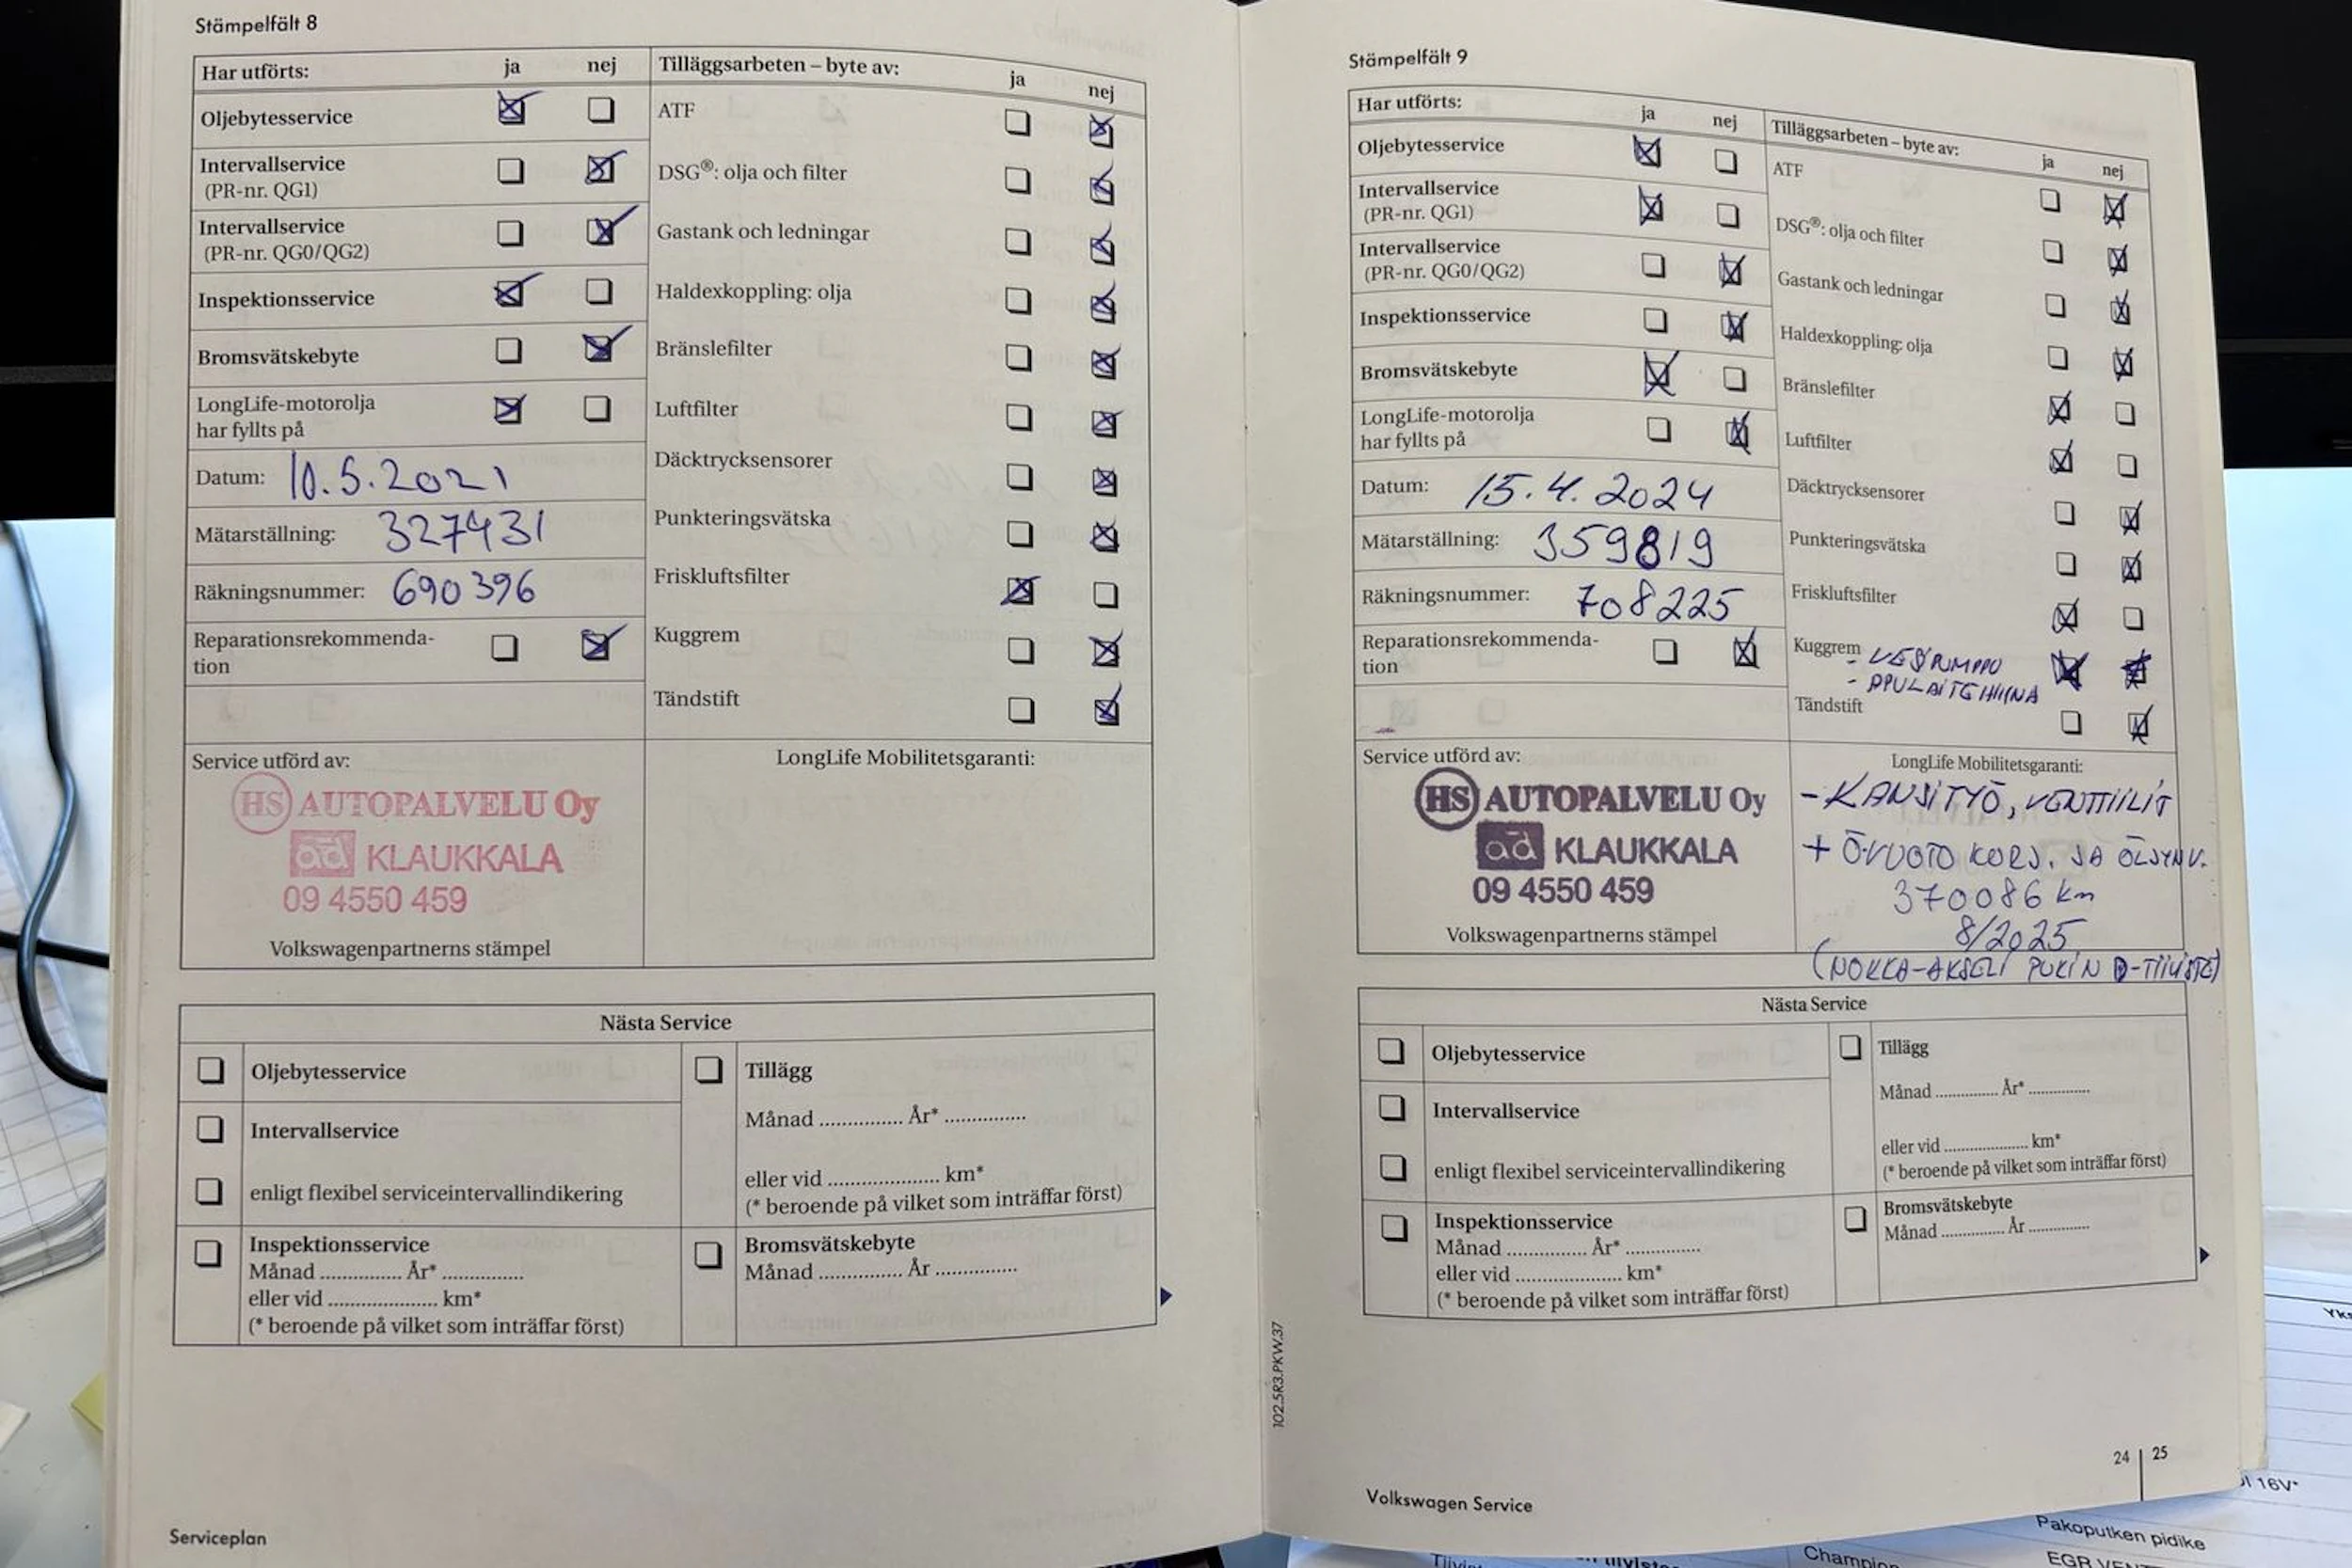 Stämpelfält 8
Har utförts: ja nej
Tilläggsarbeten – byte av: ja nej
Oljebytesservice
Intervallservice
(PR-nr. QG1)
Intervallservice
(PR-nr. QG0/QG2)
Inspektionsservice
Bromsvätskebyte
LongLife-motorolja
har fyllts på
Datum: 10.5.2021
Mätarställning: 327431
Räkningsnummer: 690396
Reparationsrekommenda-
tion
ATF
DSG®: olja och filter
Gastank och ledningar
Haldexkoppling: olja
Bränslefilter
Luftfilter
Däcktrycksensorer
Punkteringsvätska
Friskluftsfilter
Kuggrem
Tändstift
Service utförd av:
HS AUTOPALVELU Oy
ad KLAUKKALA
09 4550 459
Volkswagenpartnerns stämpel
LongLife Mobilitetsgaranti:
Nästa Service
Oljebytesservice
Intervallservice
enligt flexibel serviceintervallindikering
Inspektionsservice
Månad ............... År* ...............
eller vid .................... km*
(* beroende på vilket som inträffar först)
Tillägg
Månad ............... År* ...............
eller vid .................... km*
(* beroende på vilket som inträffar först)
Bromsvätskebyte
Månad ............... År ...............
Serviceplan
Stämpelfält 9
Har utförts: ja nej
Tilläggsarbeten – byte av: ja nej
Oljebytesservice
Intervallservice
(PR-nr. QG1)
Intervallservice
(PR-nr. QG0/QG2)
Inspektionsservice
Bromsvätskebyte
LongLife-motorolja
har fyllts på
Datum: 15.4.2024
Mätarställning: 359819
Räkningsnummer: 708225
Reparationsrekommenda-
tion
ATF
DSG®: olja och filter
Gastank och ledningar
Haldexkoppling: olja
Bränslefilter
Luftfilter
Däcktrycksensorer
Punkteringsvätska
Friskluftsfilter
Kuggrem - VESIPUMPPU
- APULAITEHIHNA
Tändstift
Service utförd av:
HS AUTOPALVELU Oy
ad KLAUKKALA
09 4550 459
Volkswagenpartnerns stämpel
LongLife Mobilitetsgaranti:
- KANSITYÖ, VENTTIILIT
+ Ö-VUOTO KORJ. JA ÖLJYNV.
370086 km
8/2025
(NOKKA-AKSELI PUKIN D-TIIVISTE)
Nästa Service
Oljebytesservice
Intervallservice
enligt flexibel serviceintervallindikering
Inspektionsservice
Månad ............... År* ...............
eller vid .................... km*
(* beroende på vilket som inträffar först)
Tillägg
Månad ............... År* ...............
eller vid .................... km*
(* beroende på vilket som inträffar först)
Bromsvätskebyte
Månad ............... År ...............
102.5R3.PKW.37
24 | 25
Volkswagen Service
16V"
Pakoputken pidike
Champion